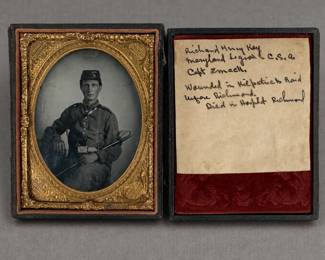 Richard Henry Key
Maryland Legion C.S.A
Capt Emack.
Wounded in Kilpatrick Raid
upon Richmond.
Died in Hospital Richmond